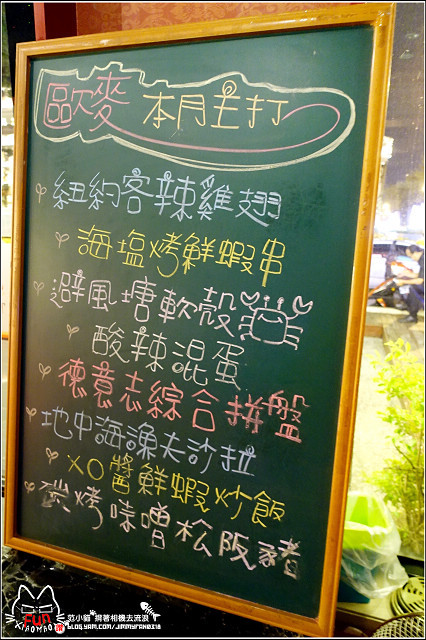 歐麥 本月主打
紐約客辣雞翅
海塩烤鮮蝦串
避風塘軟殼
酸辣混蛋
德意志綜合拼盤
地中海漁夫沙拉
XO醬鮮蝦炒飯
炭烤味噌松阪豬
FUN
XIAOMAO
范小貓"揹著相機去流浪
BLOG.YAM.COM/JIMMYFAN0318